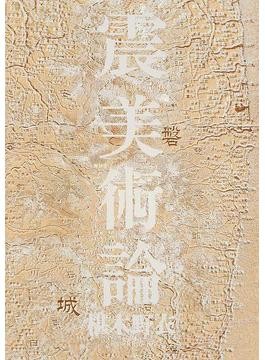 震美術論
椹木野衣
磐
城